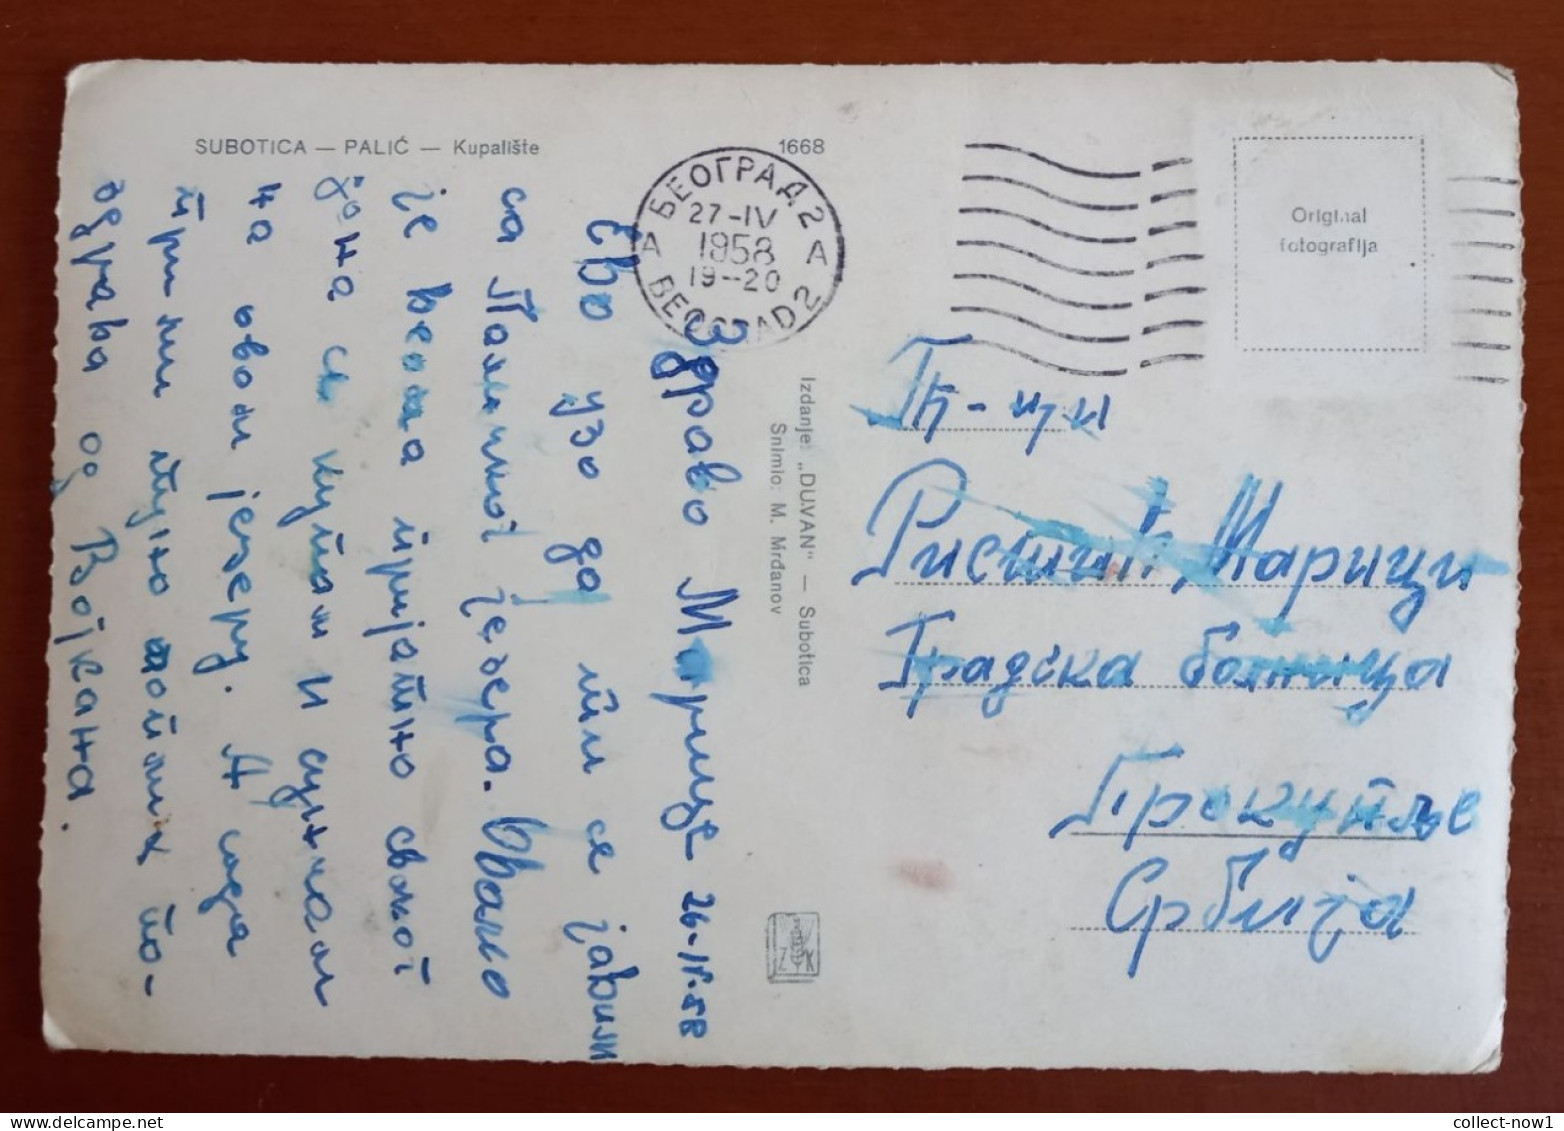 SUBOTICA — PALIĆ — Kupalište
1668
БЕОГРАД 2
27-IV
1958
19--20
A A
BEOGRAD 2
Original
fotografija
Izdanje: „DUVAN" — Subotica
Snimio: M. Mrđanov
Z K
Здраво Марице 26-IV-58
Ево узо да ти се јавим
са Палићког језера. Овамо
је веома пријатно
дана се купам и сунчам
на овом језеру. А сада
прими пуно топлих по-
здрава од Војкана.
Тћ-ци
Ристић Марици
Градска болница
Прокупље
Србија
collect-now1